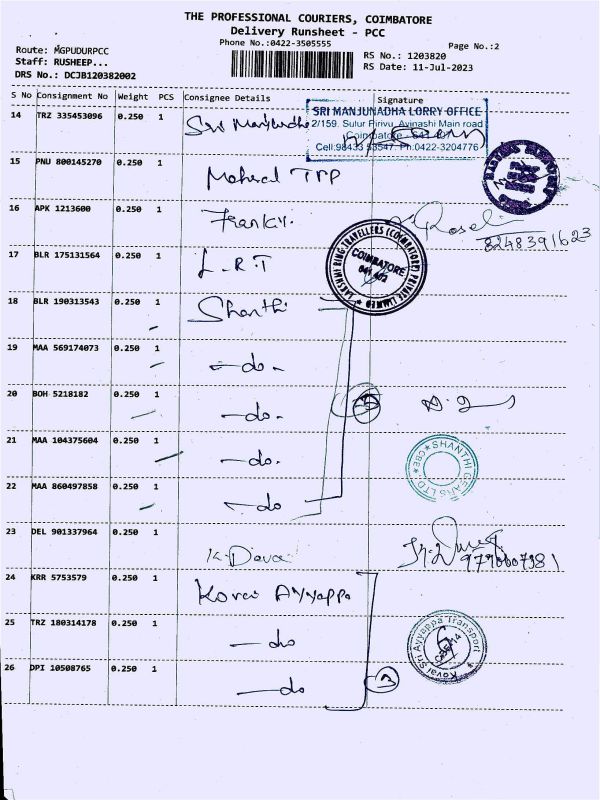 THE PROFESSIONAL COURIERS, COIMBATORE
Delivery Runsheet - PCC
Phone No.:0422-3505555
Page No.:2
Route: MGPUDURPCC
Staff: RUSHEEP...
DRS No.: DCJB120382002
RS No.: 1203820
RS Date: 11-Jul-2023
S No Consignment No Weight PCS Consignee Details Signature
14 TRZ 335453096 0.250 1 Sri Manjunadha
SRI MANJUNADHA LORRY OFFICE
2/159. Sulur Pirivu, Avinashi Main road
Coimbatore - 641
Cell:98433 53547. Ph:0422-3204776
15 PNU 800145270 0.250 1 TRP
16 APK 1213600 0.250 1 Frankly.
8248391623
17 BLR 175131564 0.250 1 L.R.T
LAKSHMI RING TRAVELLERS (COIMBATORE) PRIVATE LIMITED
COIMBATORE
641 402
18 BLR 190313543 0.250 1 Shanthi
19 MAA 569174073 0.250 1 - do -
20 BOH 5218182 0.250 1 - do -
5
21 MAA 104375604 0.250 1 - do -
SHANTHI GEARS LTD. CBE
22 MAA 860497858 0.250 1 - do
23 DEL 901337964 0.250 1 K. Deva
24 KRR 5753579 0.250 1 Kovai Ayyappa
25 TRZ 180314178 0.250 1 - do
Kovai Sri Ayyappa Transport
26 DPI 10508765 0.250 1 - do
3